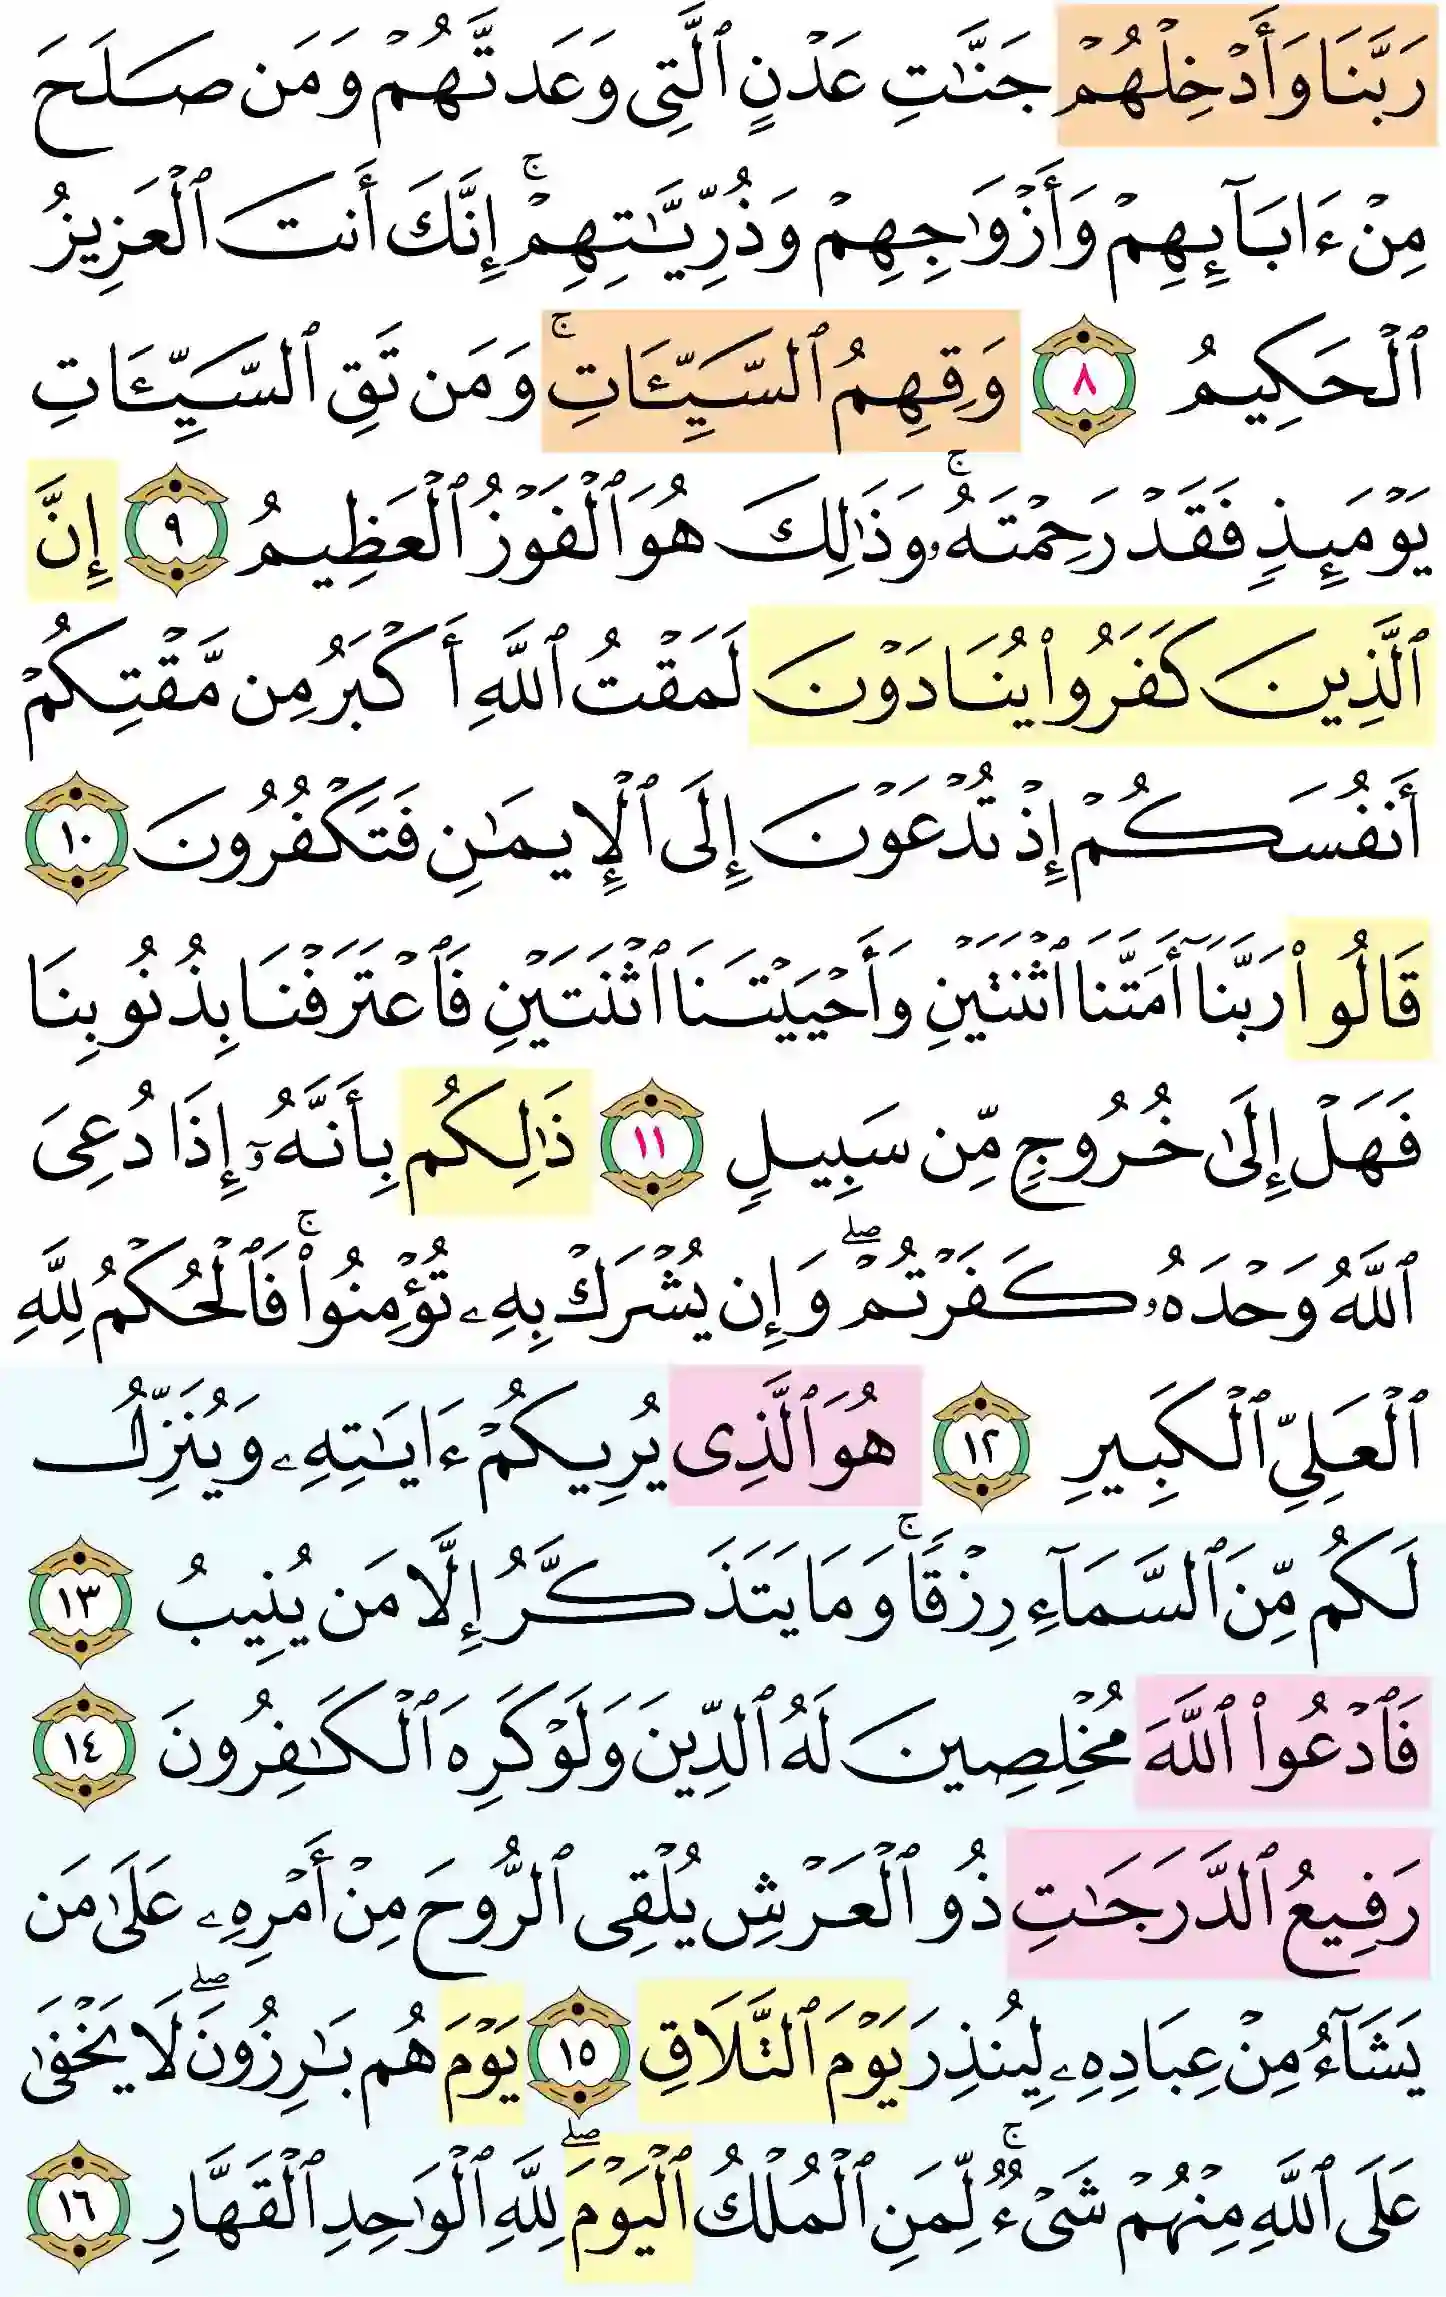 رَبَّنَا وَأَدْخِلْهُمْ جَنَّـٰتِ عَدْنٍ ٱلَّتِى وَعَدتَّهُمْ وَمَن صَلَحَ
مِنْ ءَابَآئِهِمْ وَأَزْوَٰجِهِمْ وَذُرِّيَّـٰتِهِمْ ۚ إِنَّكَ أَنتَ ٱلْعَزِيزُ
ٱلْحَكِيمُ ٨ وَقِهِمُ ٱلسَّيِّـَٔاتِ ۚ وَمَن تَقِ ٱلسَّيِّـَٔاتِ
يَوْمَئِذٍ فَقَدْ رَحِمْتَهُۥ ۚ وَذَٰلِكَ هُوَ ٱلْفَوْزُ ٱلْعَظِيمُ ٩ إِنَّ
ٱلَّذِينَ كَفَرُوا۟ يُنَادَوْنَ لَمَقْتُ ٱللَّهِ أَكْبَرُ مِن مَّقْتِكُمْ
أَنفُسَكُمْ إِذْ تُدْعَوْنَ إِلَى ٱلْإِيمَـٰنِ فَتَكْفُرُونَ ١٠
قَالُوا۟ رَبَّنَآ أَمَتَّنَا ٱثْنَتَيْنِ وَأَحْيَيْتَنَا ٱثْنَتَيْنِ فَٱعْتَرَفْنَا بِذُنُوبِنَا
فَهَلْ إِلَىٰ خُرُوجٍ مِّن سَبِيلٍ ١١ ذَٰلِكُم بِأَنَّهُۥٓ إِذَا دُعِىَ
ٱللَّهُ وَحْدَهُۥ كَفَرْتُمْ ۖ وَإِن يُشْرَكْ بِهِۦ تُؤْمِنُوا۟ ۚ فَٱلْحُكْمُ لِلَّهِ
ٱلْعَلِىِّ ٱلْكَبِيرِ ١٢ هُوَ ٱلَّذِى يُرِيكُمْ ءَايَـٰتِهِۦ وَيُنَزِّلُ
لَكُم مِّنَ ٱلسَّمَآءِ رِزْقًا ۚ وَمَا يَتَذَكَّرُ إِلَّا مَن يُنِيبُ ١٣
فَٱدْعُوا۟ ٱللَّهَ مُخْلِصِينَ لَهُ ٱلدِّينَ وَلَوْ كَرِهَ ٱلْكَـٰفِرُونَ ١٤
رَفِيعُ ٱلدَّرَجَـٰتِ ذُو ٱلْعَرْشِ يُلْقِى ٱلرُّوحَ مِنْ أَمْرِهِۦ عَلَىٰ مَن
يَشَآءُ مِنْ عِبَادِهِۦ لِيُنذِرَ يَوْمَ ٱلتَّلَاقِ ١٥ يَوْمَ هُم بَـٰرِزُونَ ۖ لَا يَخْفَىٰ
عَلَى ٱللَّهِ مِنْهُمْ شَىْءٌ ۚ لِّمَنِ ٱلْمُلْكُ ٱلْيَوْمَ ۖ لِلَّهِ ٱلْوَٰحِدِ ٱلْقَهَّارِ ١٦